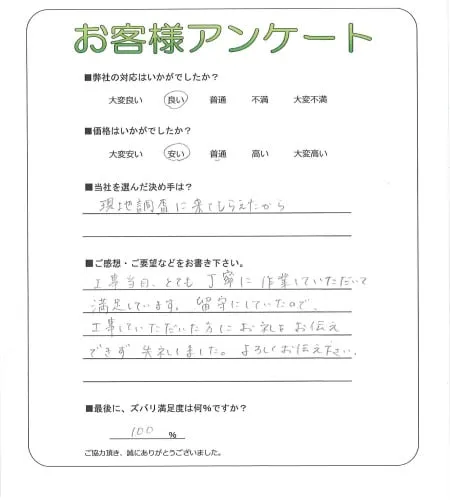 お客様アンケート
■弊社の対応はいかがでしたか?
大変良い 良い 普通 不満 大変不満
■価格はいかがでしたか?
大変安い 安い 普通 高い 大変高い
■当社を選んだ決め手は?
現地調査に来てもらえたから
■ご感想・ご要望などをお書き下さい。
工事当日、とても丁寧に作業していただいて
満足しています。留守にしていたので、
工事していただいた方にお礼もお伝え
できず失礼しました。よろしくお伝え下さい。
■最後に、ズバリ満足度は何%ですか?
100 %
ご協力頂き、誠にありがとうございました。